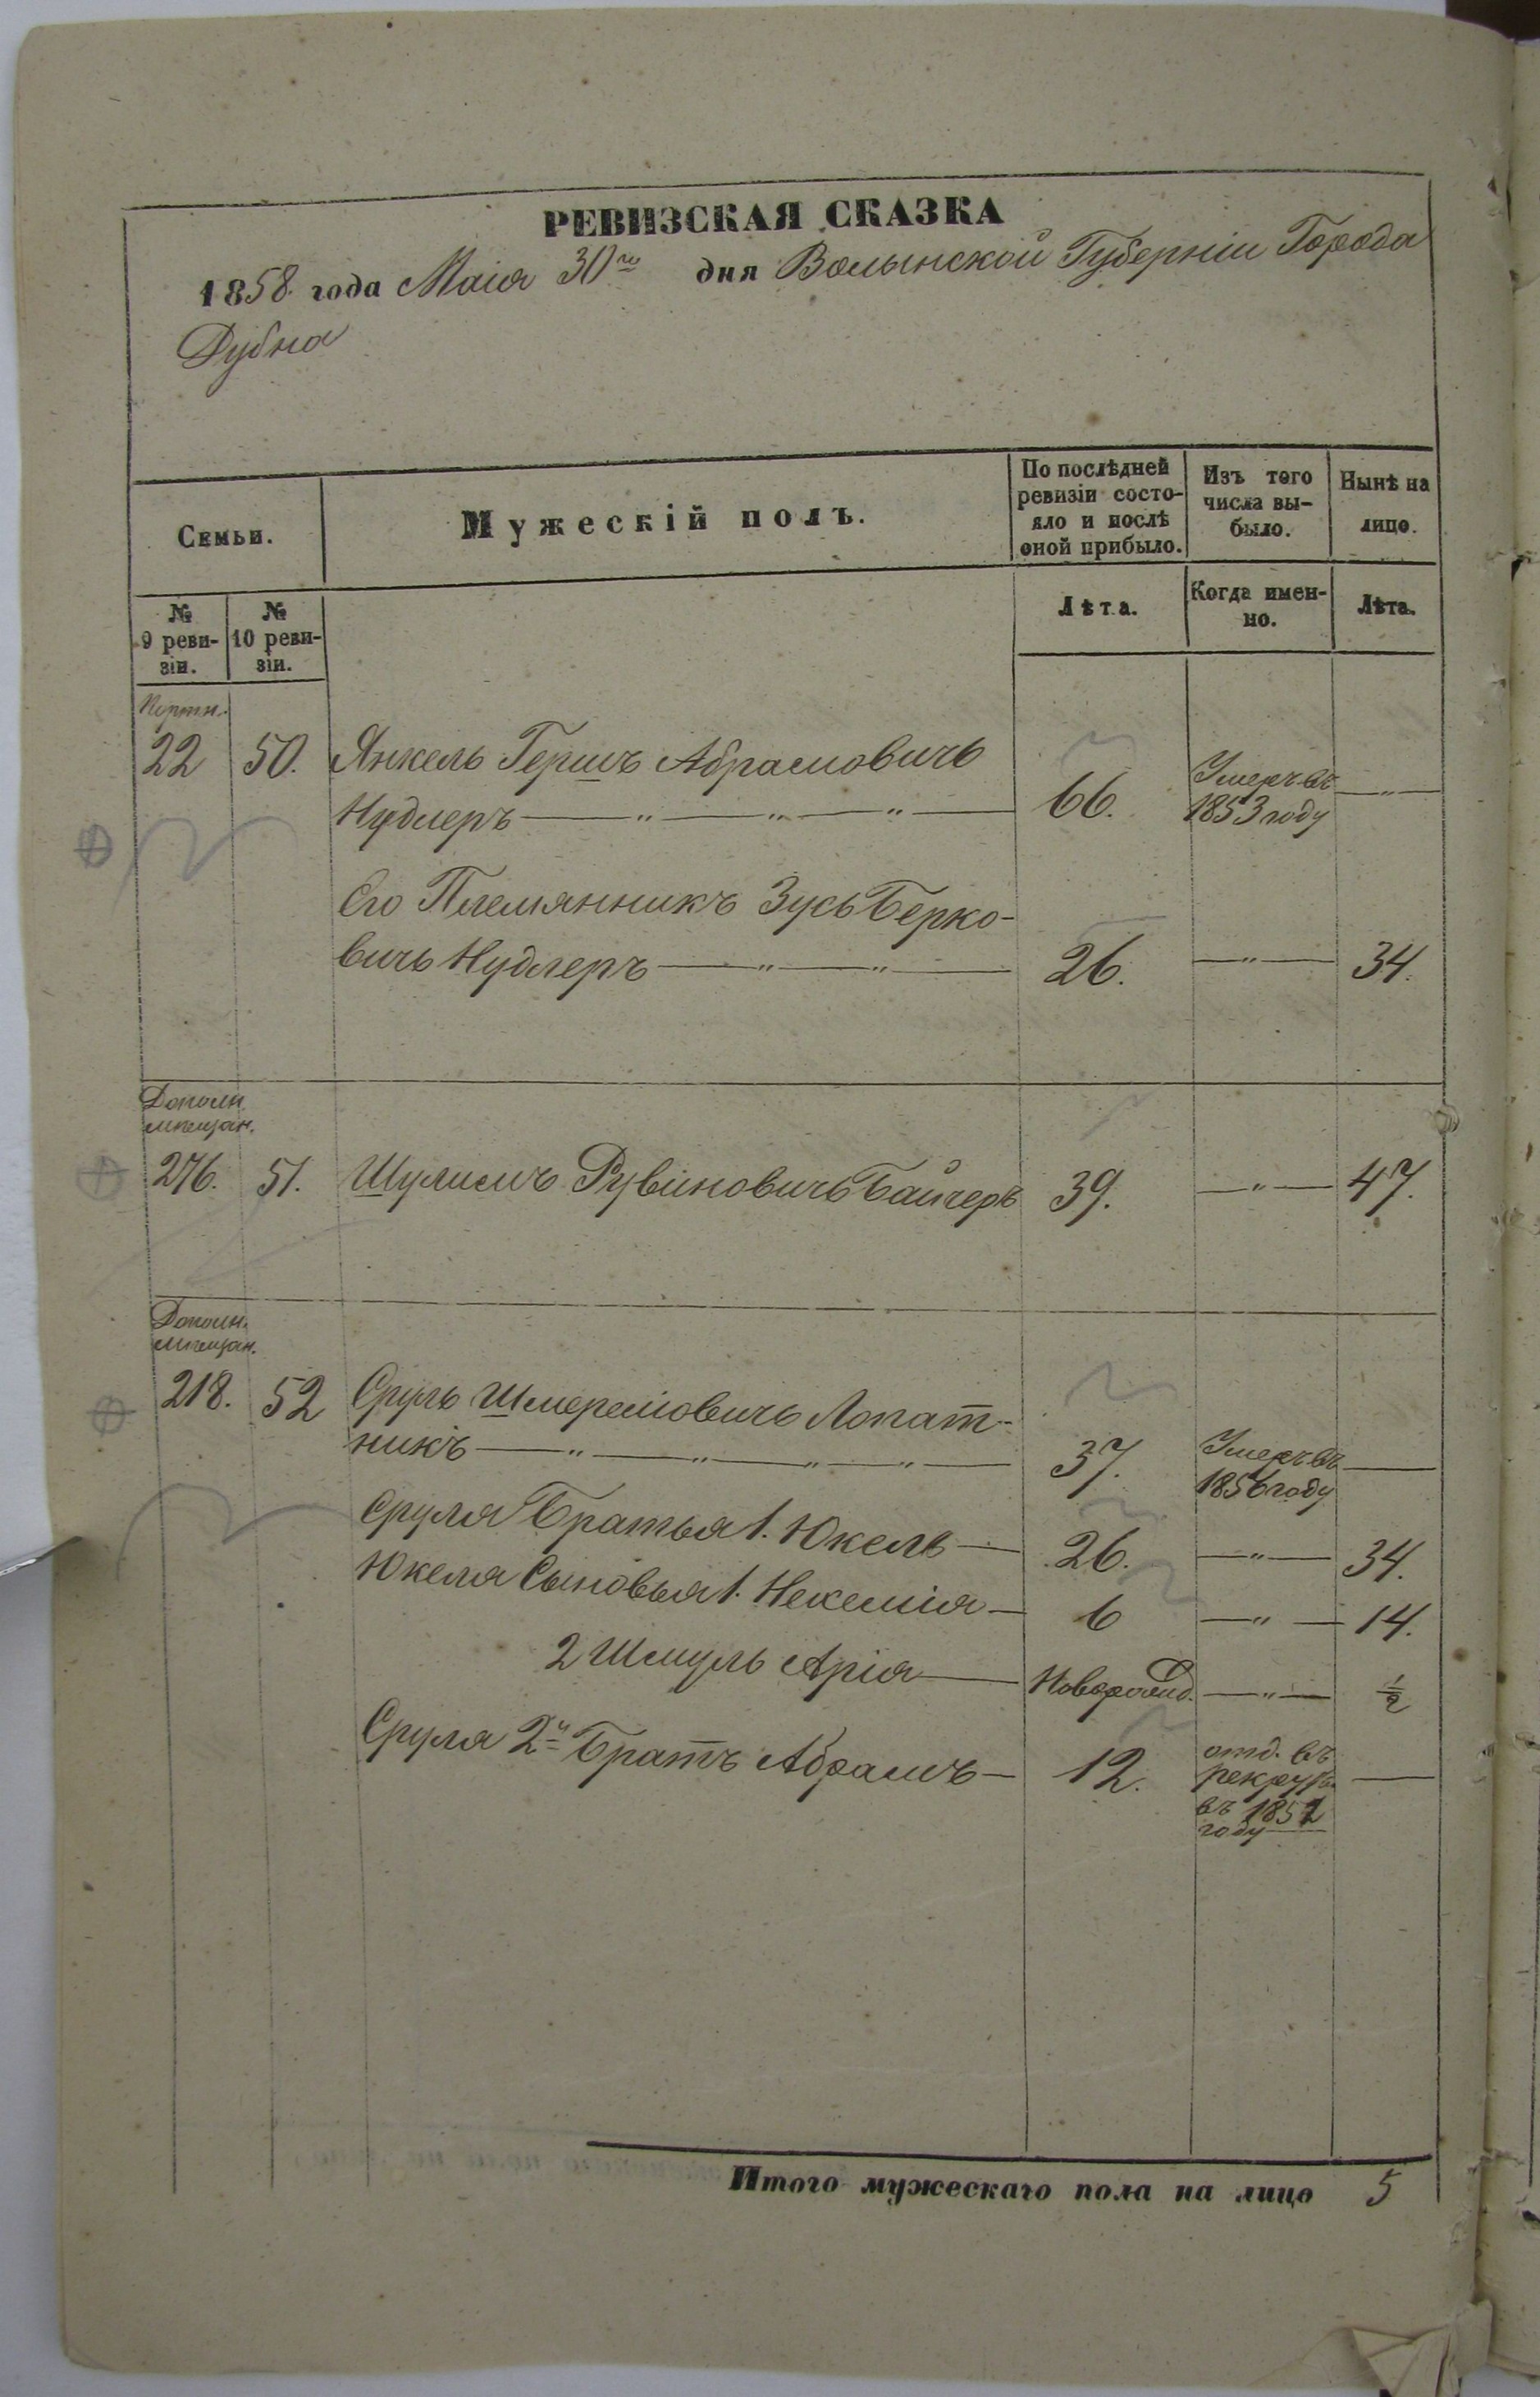 РЕВИЗСКАЯ СКАЗКА
1858 года Маія 30го дня Волынской Губерніи Города
Дубна
Семьи.
Мужескій полъ.
По послѣдней ревизіи состо-яло и послѣ оной прибыло.
Изъ того числа вы-было.
Нынѣ на лицо.
№ 9 реви-зіи.
№ 10 реви-зіи.
Лѣта.
Когда имен-но.
Лѣта.
22 50. Янкель Гершъ Абрамовичь
Нудлеръ — " — " — " — 66. Умеръ въ 1853 году — " —
Его Племянникъ Зусь Берко-
вичь Нудлеръ — " — " — 26. — " — 34.
Дополн.
мѣщан.
276. 51. Шулимъ Рувиновичь Байгеръ 39. — " — 47.
Дополн.
мѣщан.
218. 52 Сруль Шмереміовичь Лопат-
никъ — " — " — " — " — 37. Умеръ въ 1856 году —
Сруля Братья 1. Юкель — 26. — " — 34.
Юкеля Сыновья 1. Некемія — 6 — " — 14.
2 Шмуль Арія — Новорожд. — " — 1/2
Сруля 2й Братъ Абрамъ — 12. отд. въ рекруты въ 1851 году —
Итого мужескаго пола на лицо 5